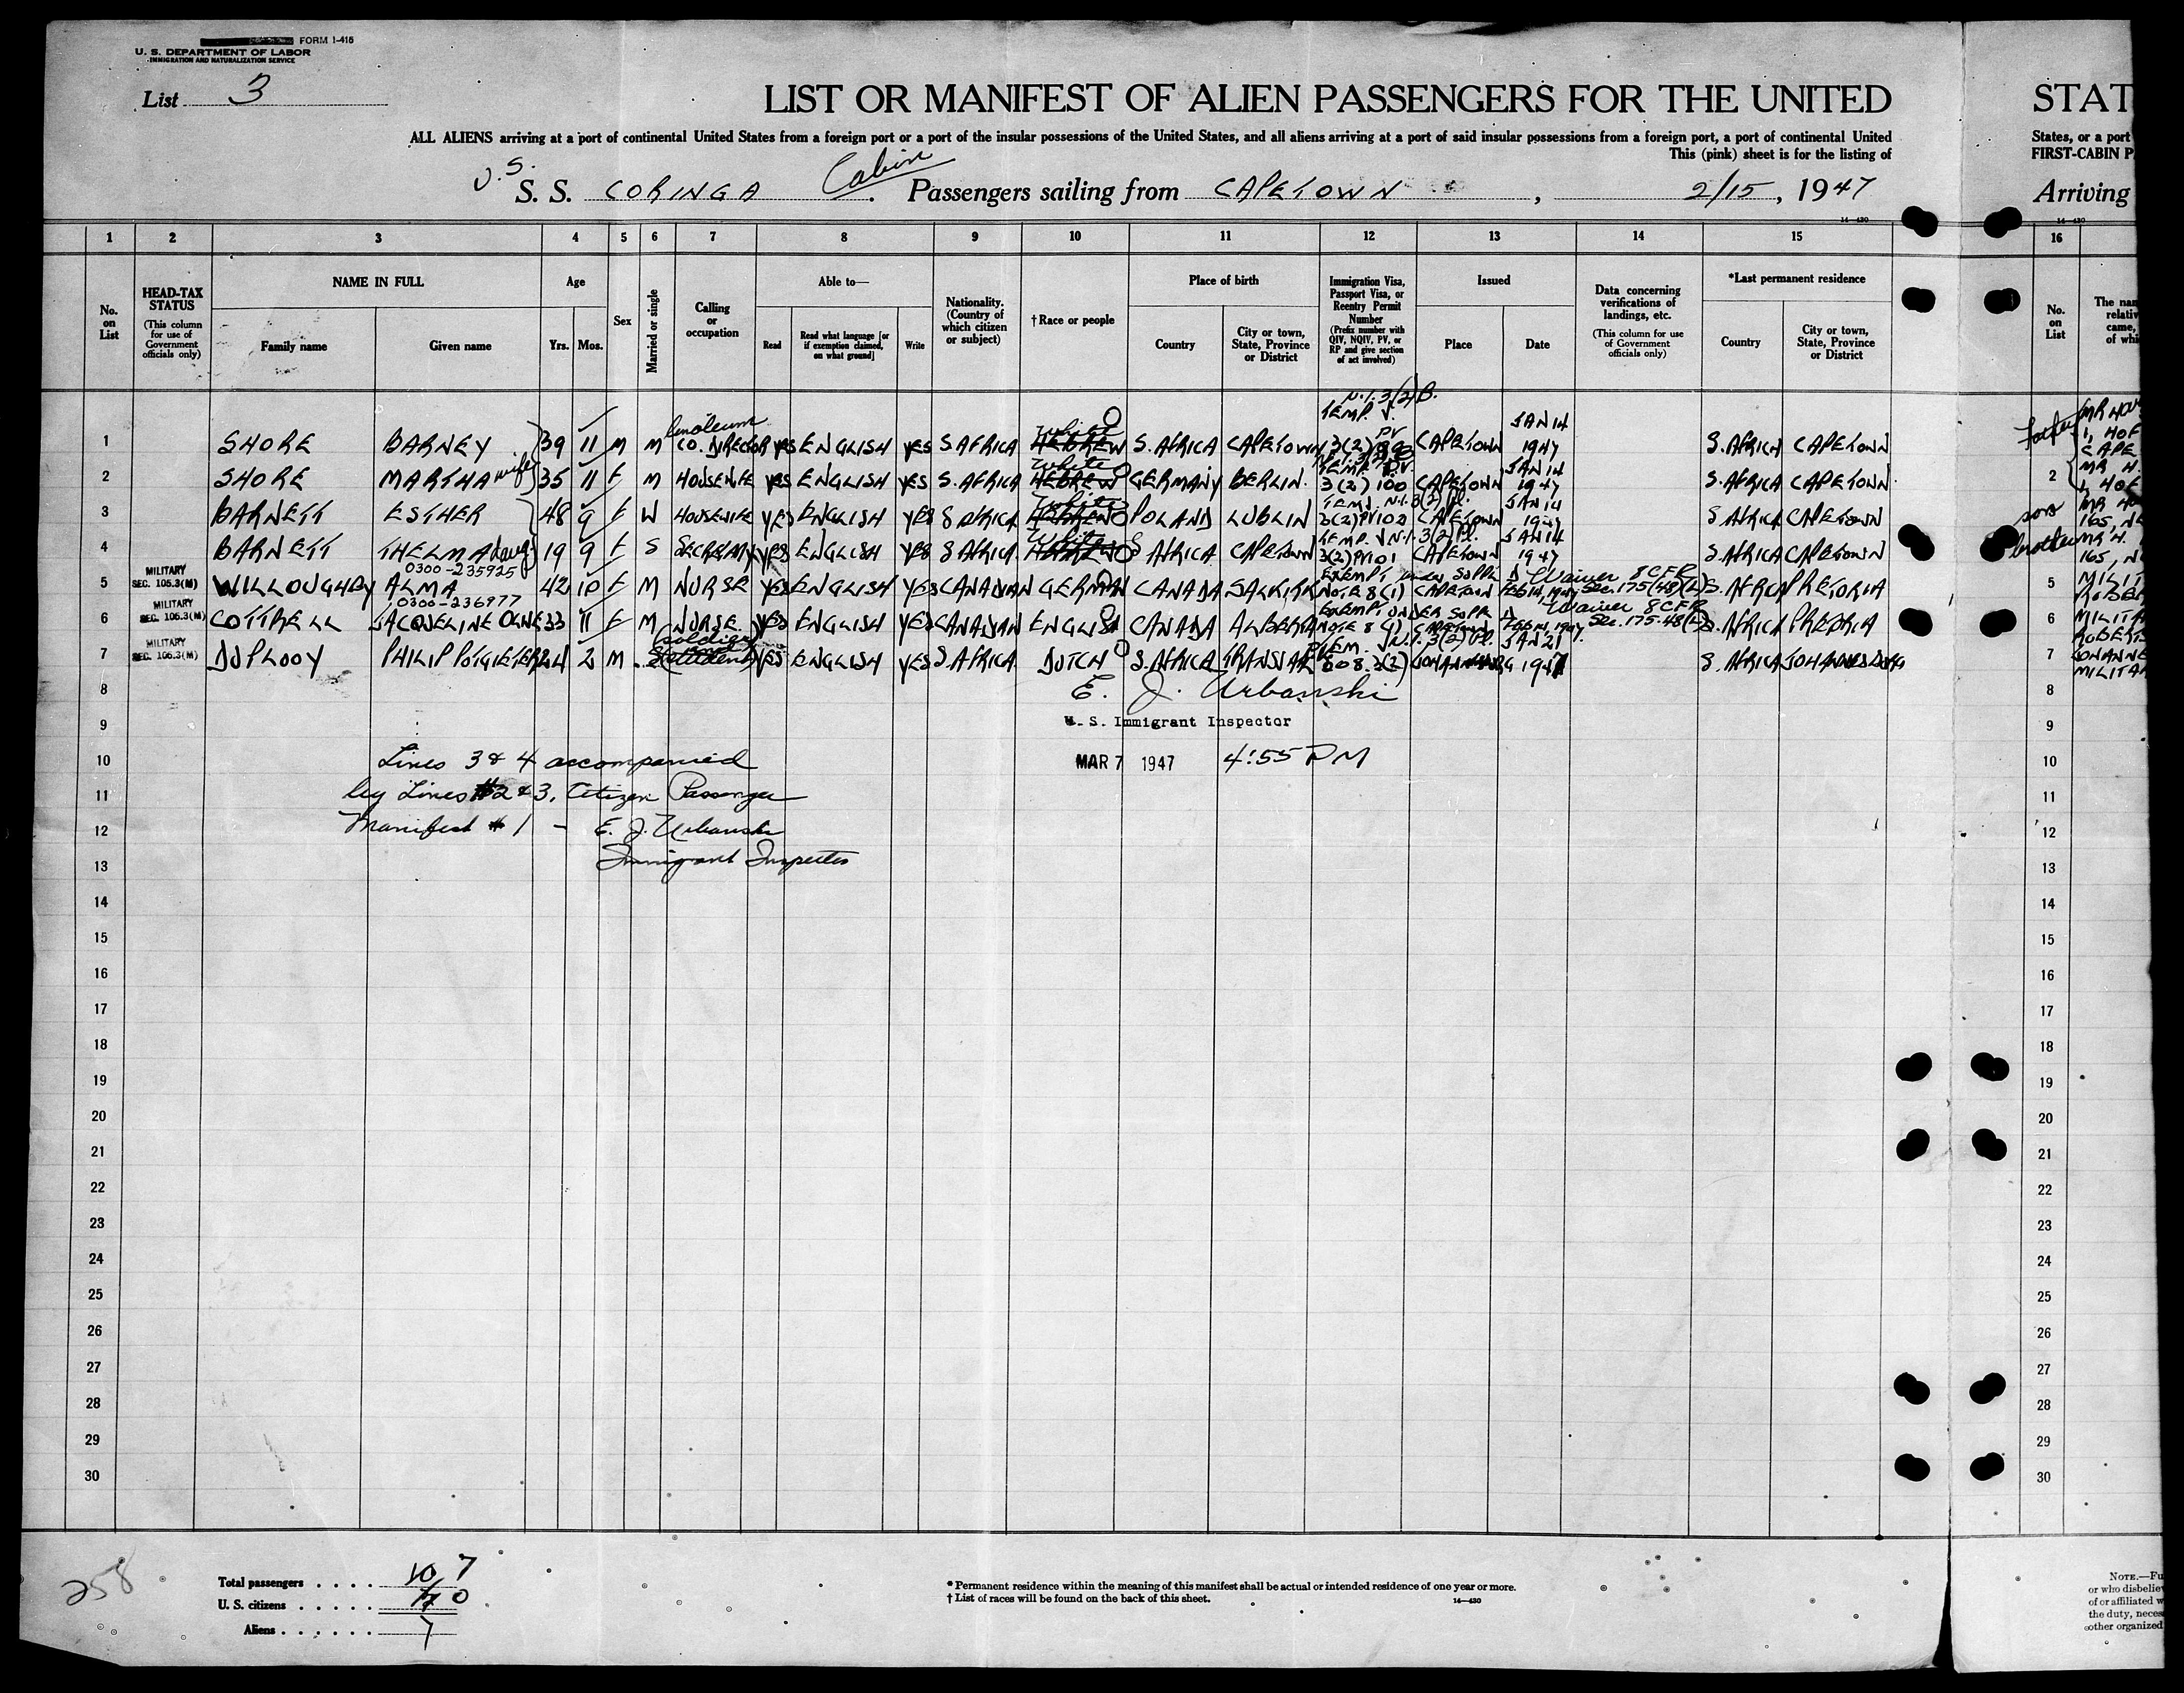 FORM I-415
U. S. DEPARTMENT OF LABOR
IMMIGRATION AND NATURALIZATION SERVICE
List 3
LIST OR MANIFEST OF ALIEN PASSENGERS FOR THE UNITED
STAT
ALL ALIENS arriving at a port of continental United States from a foreign port or a port of the insular possessions of the United States, and all aliens arriving at a port of said insular possessions from a foreign port, a port of continental United
States, or a port
This (pink) sheet is for the listing of
FIRST-CABIN P
U.S. S. S. CORINGA Cabin Passengers sailing from CAPETOWN, 2/15, 1947
Arriving
14—430 14—430
1 2 3 4 5 6 7 8 9 10 11 12 13 14 15 16
No. on List
HEAD-TAX STATUS
(This column for use of Government officials only)
NAME IN FULL
Family name Given name
Age
Yrs. Mos.
Sex
Married or single
Calling or occupation
Able to—
Read Read what language [or if exemption claimed, on what ground] Write
Nationality. (Country of which citizen or subject)
†Race or people
Place of birth
Country City or town, State, Province or District
Immigration Visa, Passport Visa, or Reentry Permit Number
(Prefix number with QIV, NQIV, PV, or RP and give section of act involved)
Issued
Place Date
Data concerning verifications of landings, etc.
(This column for use of Government officials only)
*Last permanent residence
Country City or town, State, Province or District
No. on List
The nam
relativ
came,
of whi
1 SHORE BARNEY 39 11 M M linoleum CO. DIRECTOR YES ENGLISH YES S AFRICA White HEBREW S. AFRICA CAPETOWN N.I. 3(2)B. TEMP. V. 3(2) PV CAPETOWN JAN 14 1947 S. AFRICA CAPETOWN
2 SHORE MARTHA wife 35 11 F M HOUSEWIFE YES ENGLISH YES S. AFRICA White HEBREW GERMANY BERLIN. TEMP. P.V. 3(2) 100 CAPETOWN JAN 14 1947 S. AFRICA CAPETOWN.
3 BARNETT ESTHER 48 9 F W HOUSEWIFE YES ENGLISH YES S AFRICA White HEBREW POLAND LUBLIN TEMP. N.I. 3(2)Pl. 3(2)PV102 CAPETOWN JAN 14 1947 S AFRICA CAPETOWN
4 BARNETT THELMA daug 19 9 F S SECRETARY YES ENGLISH YES S AFRICA White HEBREW S AFRICA CAPETOWN TEMP. V N.I. 3(2)Pl. 3(2)PV101 CAPETOWN JAN 14 1947 S. AFRICA CAPETOWN
MILITARY SEC. 105.3(M) 5 WILLOUGHBY ALMA 0300-235925 42 10 F M NURSE YES ENGLISH YES CANADIAN GERMAN CANADA SALKIRK EXEMPT under SUPP. D NOTE 8(1) CAPETOWN FEB 14, 1947 Waiver 8CFR Sec. 175(48)(L) S. AFRICA PRETORIA
MILITARY SEC. 105.3(M) 6 COTTRELL JACQUELINE OLIVE 0300-236977 33 11 F M NURSE. YES ENGLISH YES CANADIAN ENGLISH CANADA ALBERTA EXEMPT UNDER SUPP. D NOTE 8 (1) CAPETOWN FEB 14, 1947 Waiver 8CFR Sec. 175-48(L) S. AFRICA
MILITARY SEC. 105.3(M) 7 DUPLOOY PHILIP POTGIETER 24 2 M S soldier YES ENGLISH YES S. AFRICA DUTCH S. AFRICA TRANSVAAL 608.3(2) N.I. 3(2)Pl. JOHANNESBURG JAN 21 1947 S. AFRICA JOHANNESBURG
8 E. J. Urbanski
9 U. S. Immigrant Inspector
10 Lines 3 & 4 accompanied MAR 7 1947 4:55 PM
11 by Lines #2 & 3, Citizen Passenger
12 Manifest #1 – E. J. Urbanski
13 Immigrant Inspector
14
15
16
17
18
19
20
21
22
23
24
25
26
27
28
29
30
father MR HOW
1, HOF
CAPE
2 MR H.
1, HOF
sons
165, N
brother MR H.
165, N
5 MILIT
ROBER
6 MILITA
ROBERTS
7 JOHANNE
MILITAR
8
9
10
11
12
13
14
15
16
17
18
19
20
21
22
23
24
25
26
27
28
29
30
258
Total passengers . . . . 10 7
U. S. citizens . . . . . 0
Aliens . . . . . . 7
* Permanent residence within the meaning of this manifest shall be actual or intended residence of one year or more.
† List of races will be found on the back of this sheet. 14—430
NOTE.—Fu
or who disbeliev
of or affiliated w
the duty, neces
other organized